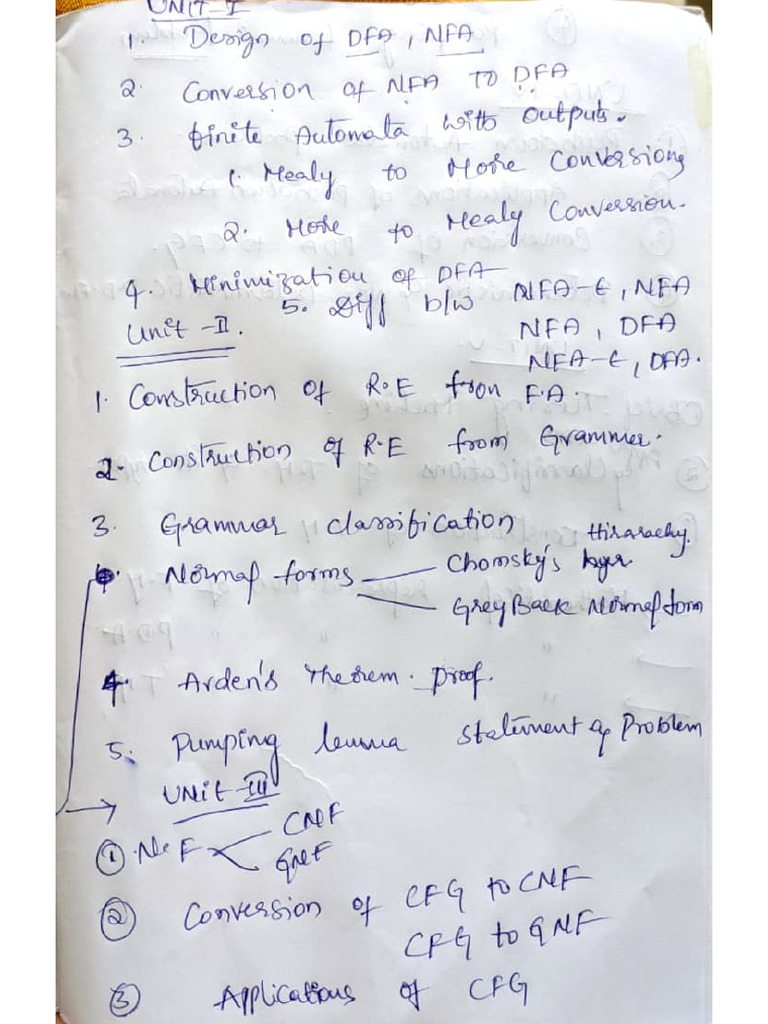 UNIT-I
1. Design of DFA, NFA
2. Conversion of NFA TO DFA
3. finite Automata with outputs.
1. Mealy to More Conversions
2. More to Mealy Conversion.
4. Minimization of DFA
5. Diff b/w NFA-ϵ, NFA
NFA, DFA
NFA-ϵ, DFA.
Unit-II.
1. Construction of R.E from F.A.
2. Construction of R.E from Grammer.
3. Grammar classification
Normal forms — Chomsky's Hirarachy.
— GreyBack Normal form
4. Arden's Theorem. Proof.
5. Pumping lemma statement & Problem
UNit-III
① N.F < CNF
GNF
② Conversion of CFG to CNF
CFG to GNF
③ Applications of CFG